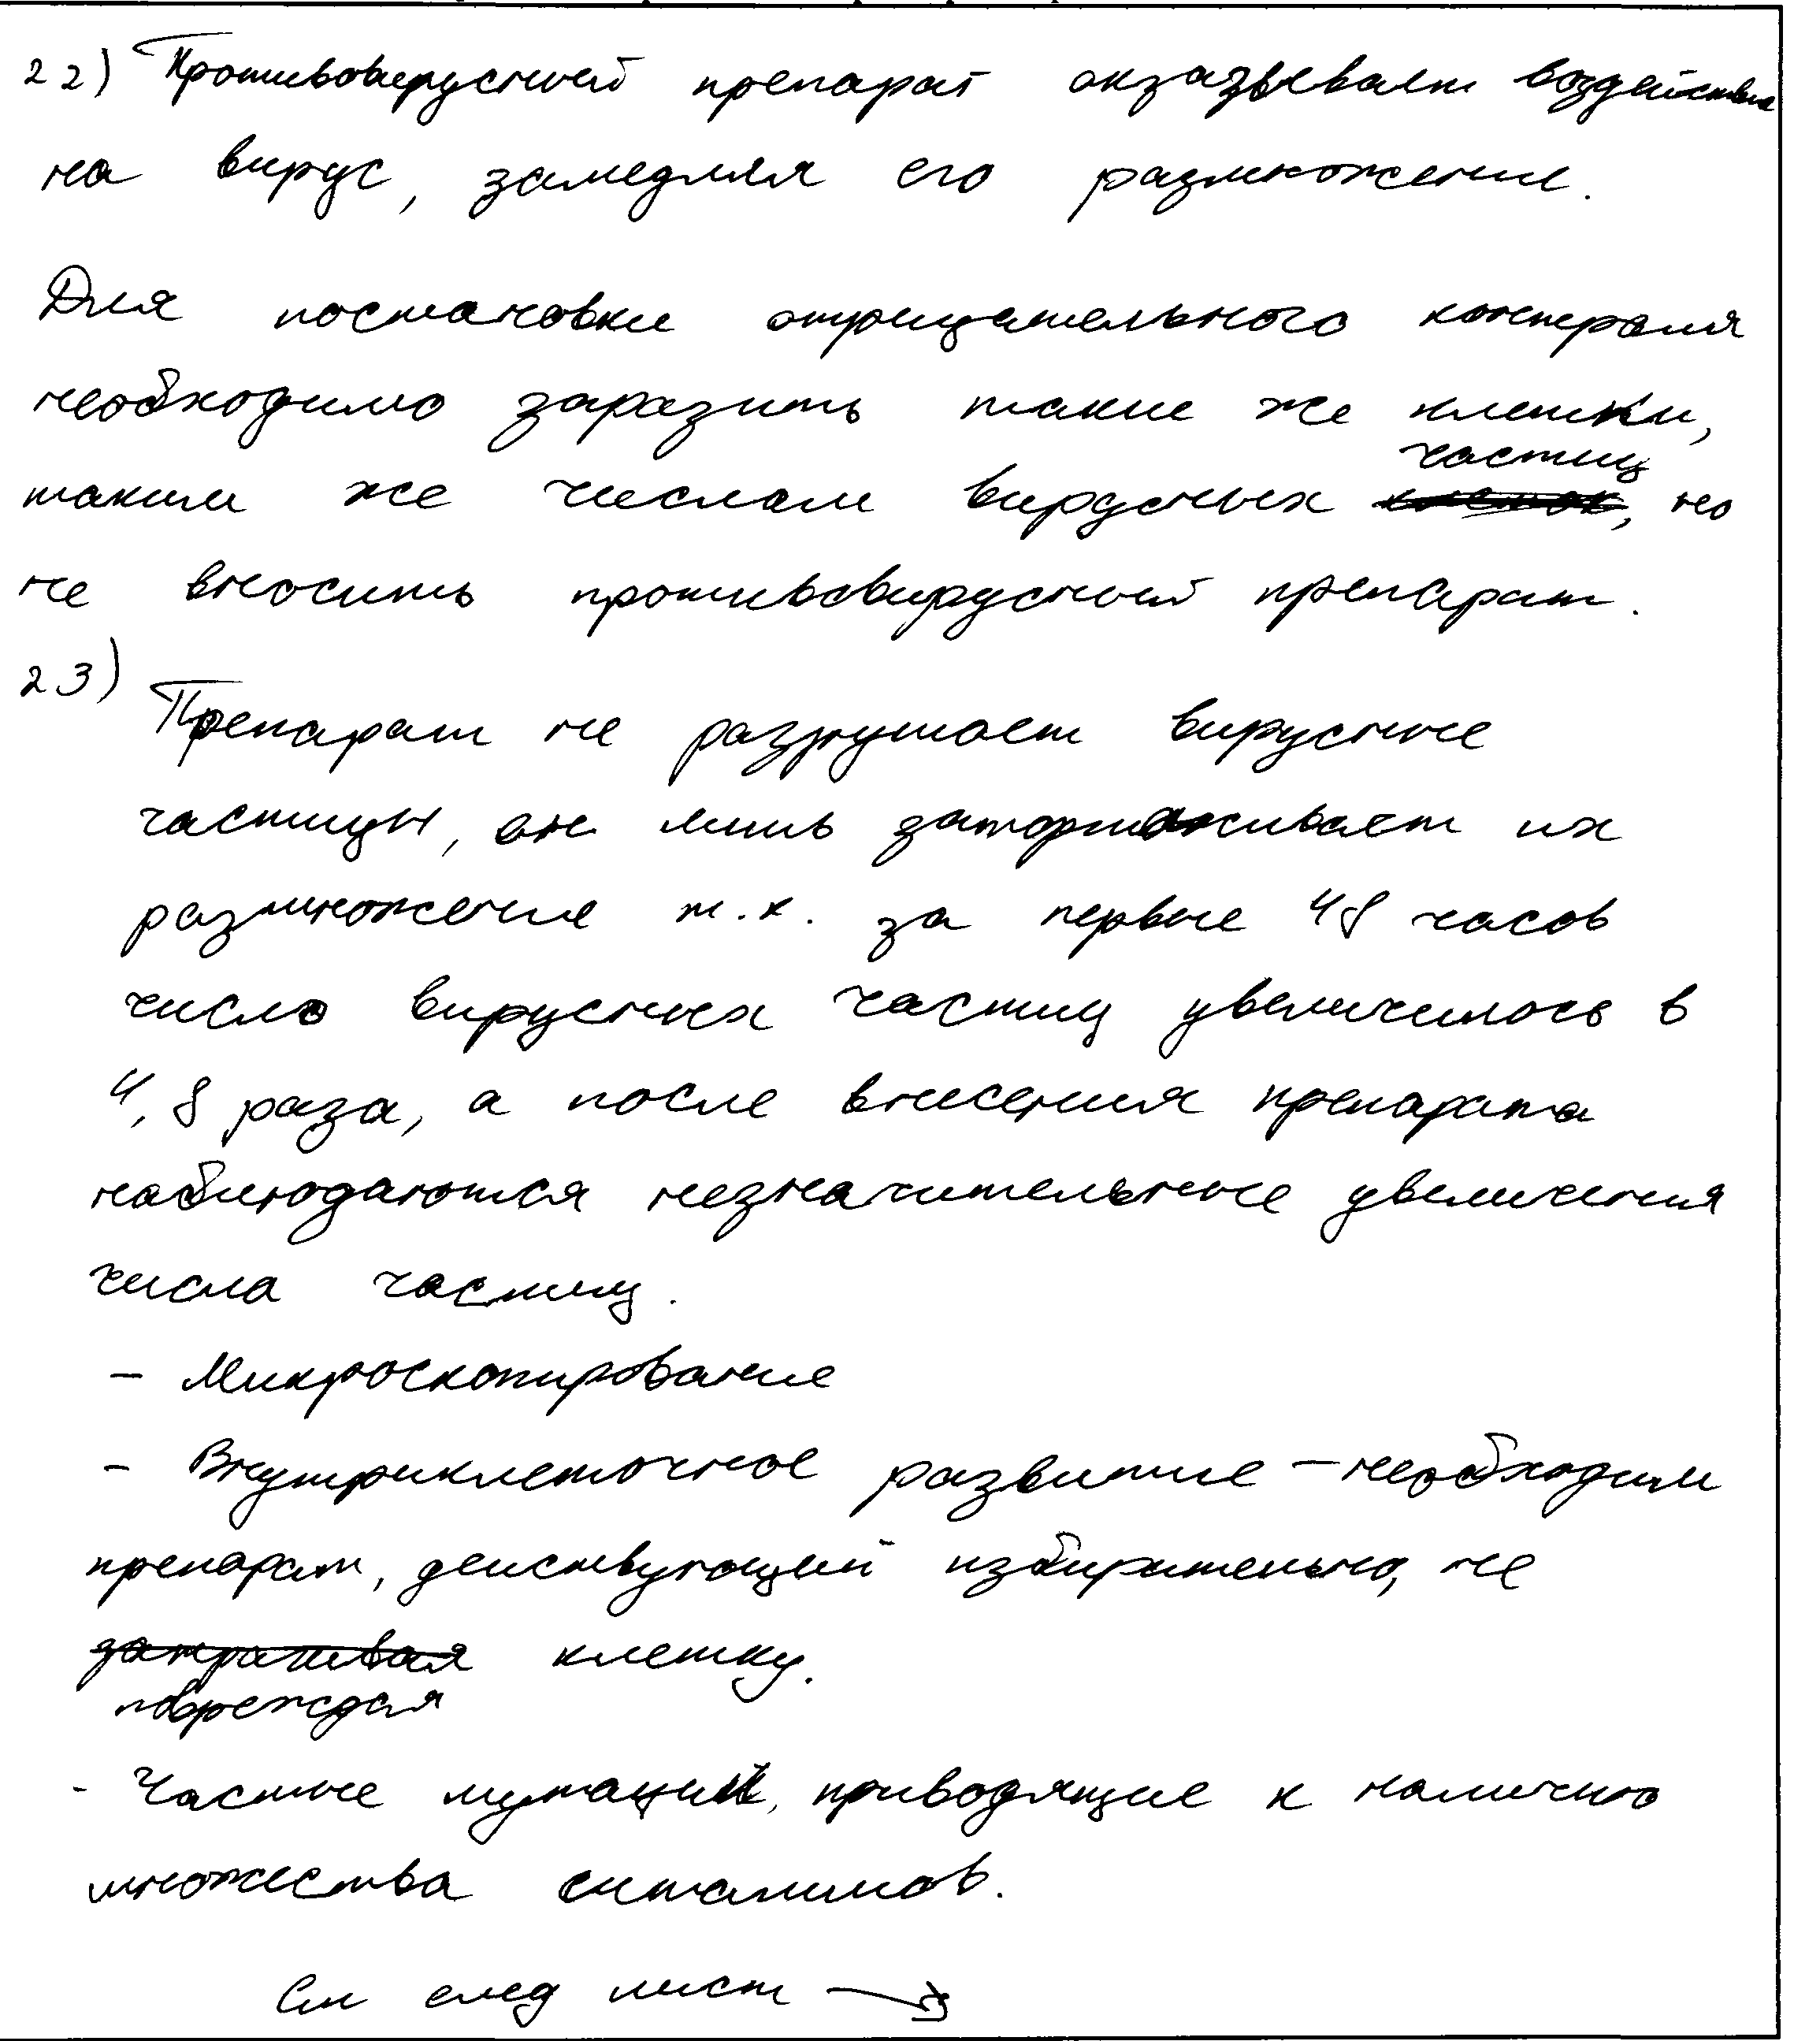 22) Противовирусный препарат окзазывает воздействие
на вирус, замедляя его размножение.
Для постановки отрицательного контроля
необходимо заразить такие же клетки,
таким же числом вирусных частиц, но
не вносить противовирусный препарат.
23)
Препарат не разрушает вирусные
частицы, он лишь затормаживает их
размножение т.к. за первые 48 часов
число вирусных частиц увеличилось в
4,8 раза, а после внесения препарата
наблюдаются незначительные увеличения
числа частиц.
- Микроскопирование
- Внутриклеточное развитие - необходим
препарат, действующий избирательно, не
повреждая клетку.
- Частые мутации, приводящие к наличию
множества
См след лист →